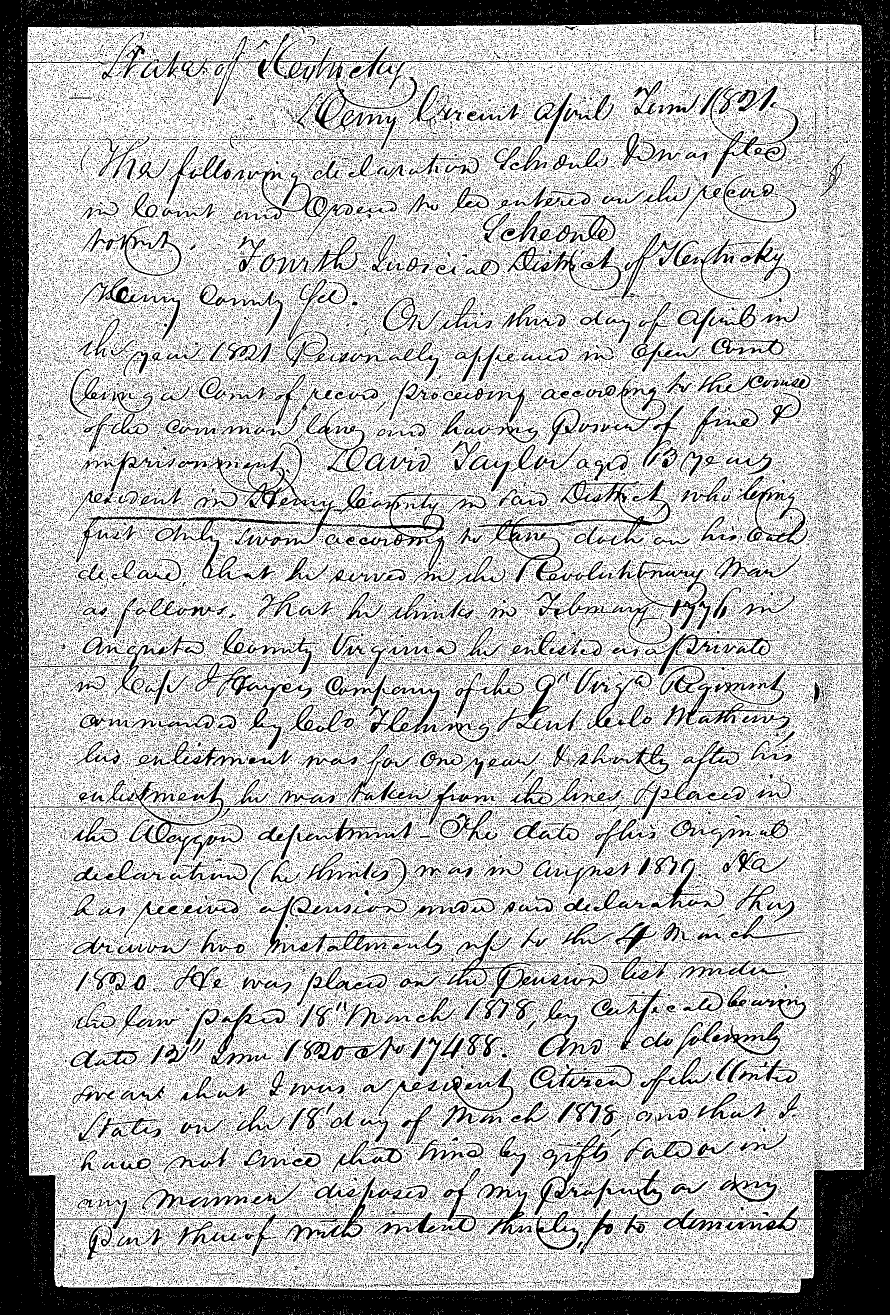 State of Kentucky
Henry Circuit April Term 1821.
The following declaration Schedule &c was filed
in Court and Ordered to be entered on the record
towit. Schedule
Fourth Judicial District of Kentucky
Henry County Sct.
On this third day of April in
the year 1821 Personally appeared in Open Court
(being a Court of record, proceeding according to the course
of the common law, and having power of fine &
imprisonment) David Taylor aged 63 years
resident in Henry County in said District who being
first duly sworn according to law, doth on his Oath
declare, that he served in the Revolutionary War
as follows. That he thinks in February 1776 in
Augusta County Virginia he enlisted as a private
in Cap J Hayes Company of the 9th Virga Regiment
commanded by Colo Fleming & Lieut Colo Mathews,
his enlistment was for One year, & shortly after his
enlistment, he was taken from the lines, & placed in
the Waggon department - The date of his Original
declaration (he thinks) was in August 1819. He
has received a pension under said declaration, thus
drawn two installments up to the 4 March
1820. He was placed on the Pension list under
the law passed 18th March 1818, by Certificate bearing
date 12th June 1820 & No 17488. And I do solemnly
swear that I was a resident Citizen of the United
States on the 18 day of March 1818, and that I
have not since that time by gift, sale or in
any manner disposed of my Property or any
part thereof with intent thereby, so to diminish